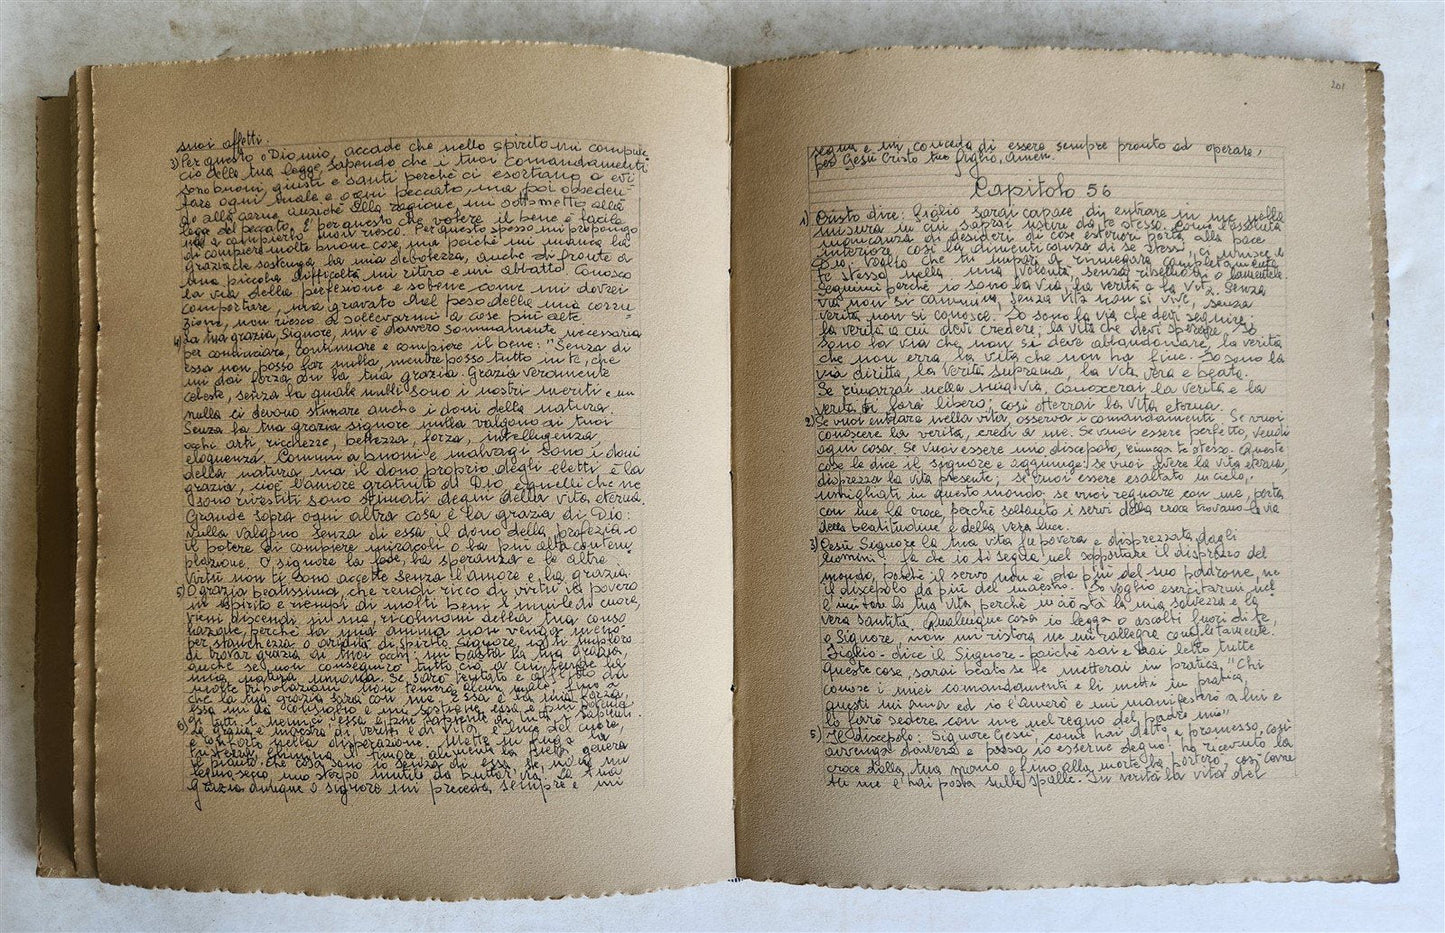 suoi affetti.
3) Per questo o Dio mio, accade che nello spirito mi compiac-
cio della tua legge, sapendo che i tuoi comandamenti
sono buoni, giusti e santi perché ci esortiano a evi
tare ogni male e ogni peccato, ma poi obbeden-
do alla carne anziché alla ragione, mi sottometto alla
legge del peccato. È per questo che volere il bene è facile
ma a compierlo non riesco. Per questo spesso mi propongo
di compiere molte buone cose, ma poiché mi manca la
grazia che sostenga la mia debolezza, anche di fronte a
una piccola difficoltà mi ritiro e mi abbatto. Conosco
la via della perfezione e so bene come mi dovrei
comportare, ma gravato dal peso della mia corru
zione, non riesco a sollevarmi a cose più alte.
4) La tua grazia, Signore, mi è davvero sommamente necessaria
per cominciare, continuare e compiere il bene: "Senza di
essa non posso far nulla, mentre posso tutto in te, che
mi dai forza con la tua grazia. Grazia veramente
celeste, senza la quale nulli sono i nostri meriti e in
nulla si devono stimare anche i doni della natura.
Senza la tua grazia signore nulla valgono ai tuoi
occhi arti, ricchezze, bellezza, forza, intelligenza,
eloquenza. Comuni a buoni e malvagi sono i doni
della natura ma il dono proprio degli eletti è la
grazia, cioè l'amore gratuito di Dio, e quelli che ne
sono rivestiti sono stimati degni della vita eterna.
Grande sopra ogni altra cosa è la grazia di Dio:
nulla valgono senza di essa il dono della profezia o
il potere di compiere miracoli o la più alta contem
plazione. O signore la fede, la speranza e le altre
virtù non ti sono accette senza l'amore e la grazia.
5) O grazia beatissima, che rendi ricco di virtù il povero
in spirito e riempi di molti beni l'umile di cuore,
vieni discendi in me, ricolmami della tua conso
lazione, perché la mia anima non venga meno
per stanchezza o aridità di spirito. Signore, io ti imploro
di trovar grazia ai tuoi occhi mi basta la tua grazia,
anche se non conseguirò tutto ciò a cui tende la
mia natura umana. Se sarò tentato e afflitto da
molte tribolazioni non temerò alcun male fino a
che la tua grazia sarà con me. Essa è la mia forza,
essa mi dà consiglio e mi sostiene essa è più potente
di tutti i nemici, essa è più sapiente di tutti i sapienti.
6) La grazia è maestra di verità e di vita, è luce del cuore,
è conforto nella disperazione. Mette in fuga la
tristezza, elimina il timore, alimenta la pietà, genera
il pianto. Che cosa sono io senza di essa se non un
legno secco uno sterpo inutile da buttar via? La tua
grazia dunque o signore mi preceda sempre e mi
201
segua e mi conceda di essere sempre pronto ad operare,
per Gesù Cristo tuo figlio, Amen.
Capitolo 56
1) Cristo dice: Figlio sarai capace di entrare in me nella
misura in cui saprai uscire da te stesso. Come l'assoluta
mancanza di desideri di cose esteriori porta alla pace
interiore così la dimenticanza di se stessi, unisce a
Dio. Voglio che tu impari a rinnegare completamente
te stesso nella mia volontà, senza ribellarti o lamentele.
Seguimi perché io sono la via, la verità e la vita. Senza
via non si cammina, senza vita non si vive, senza
verità non si conosce. Io sono la via che devi seguire;
la verità a cui devi credere; la vita che devi sperare. Io
sono la via che non si deve abbandonare, la verità
che non erra, la vita che non ha fine. Io sono la
via diritta, la verità suprema, la vita vera e beata.
Se rimarrai nella mia via, conoscerai la verità e la
verità ti farà libero; così otterrai la vita eterna.
2) Se vuoi entrare nella vita, osserva i comandamenti. Se vuoi
conoscere la verità, credi a me. Se vuoi essere perfetto, vendi
ogni cosa. Se vuoi essere mio discepolo, rinnega te stesso. Queste
cose le dice il signore e aggiunge: se vuoi avere la vita eterna,
disprezza la vita presente; se vuoi essere esaltato in cielo,
umiliati in questo mondo, se vuoi regnare con me, porta
con me la croce, perché soltanto i servi della croce trovano la via
della beatitudine e della vera luce.
3) Gesù Signore la tua vita fu povera e disprezzata dagli
uomini: fa che io ti segua nel sopportare il disprezzo del
mondo, poiché il servo non è da più del suo padrone, ne
il discepolo da più del maestro. Io voglio esercitarmi nel
l'imitare la tua vita perché in ciò sta la mia salvezza e la
vera santità. Qualunque cosa io legga o ascolti fuori di te,
o Signore, non mi ristora ne mi rallegra completamente.
Figlio - dice il Signore - poiché sai e hai letto tutte
queste cose, sarai beato se le metterai in pratica, "Chi
conosce i miei comandamenti e li metti in pratica,
questi mi ama ed io l'amerò e mi manifesterò a lui e
lo farò sedere con me nel regno del padre mio"
5) Il discepolo: Signore Gesù, come hai detto e promesso, così
avvenga davvero e possa io esserne degno! ho ricevuto la
croce dalla tua mano e fino alla morte la porterò, così come
tu me l'hai posta sulle spalle. In verità la vita del